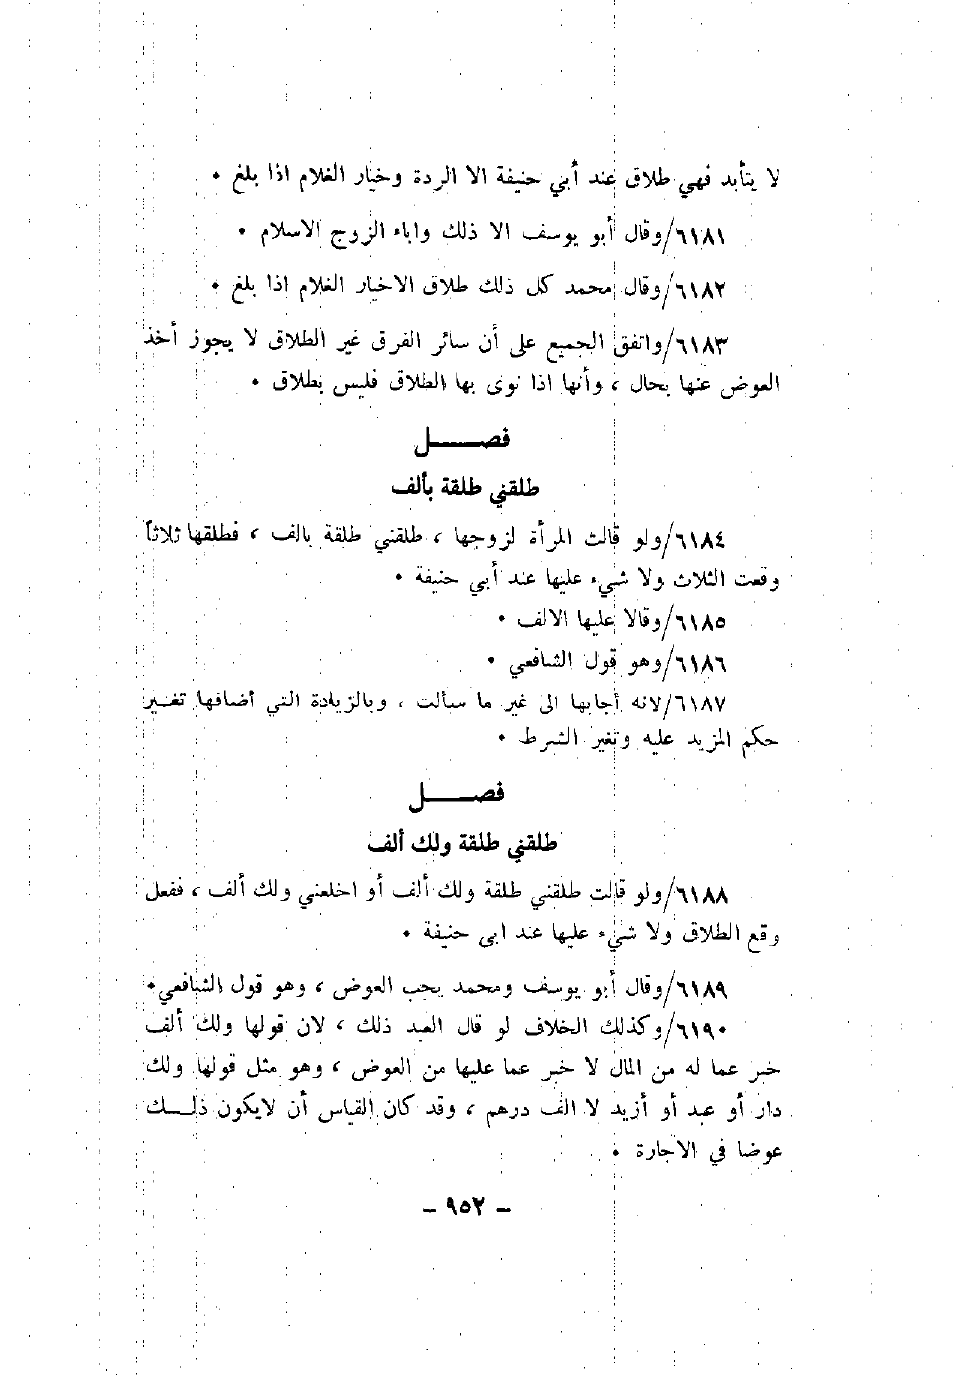 لا يتأبد فهي طلاق عند أبي حنيفة الا الردة وخيار الغلام اذا بلغ ٠
٦١٨١/وقال أبو يوسف الا ذلك واباء الزوج الاسلام ٠
٦١٨٢/وقال محمد كل ذلك طلاق الاخيار الغلام اذا بلغ ٠
٦١٨٣/واتفق الجميع على أن سائر الفرق غير الطلاق لا يجوز أخذ
العوض عنها بحال ، وأنها اذا نوى بها الطلاق فليس بطلاق ٠
فصـــــل
طلقني طلقة بألف
٦١٨٤/ولو قالت المرأة لزوجها ، طلقني طلقة بالف ، فطلقها ثلاثاً
وقعت الثلاث ولا شيء عليها عند أبي حنيفة ٠
٦١٨٥/وقالا عليها الالف ٠
٦١٨٦/وهو قول الشافعي ٠
٦١٨٧/لانه أجابها الى غير ما سألت ، وبالزيادة التي أضافها تغيـر
حكم المزيد عليه وتغير الشرط ٠
فصـــــل
طلقني طلقة ولك ألف
٦١٨٨/ولو قالت طلقني طلقة ولك ألف أو اخلعني ولك ألف ، ففعل
وقع الطلاق ولا شيء عليها عند ابي حنيفة ٠
٦١٨٩/وقال أبو يوسف ومحمد يجب العوض ، وهو قول الشافعي٠
٦١٩٠/وكذلك الخلاف لو قال العبد ذلك ، لان قولها ولك ألف
خبر عما له من المال لا خبر عما عليها من العوض ، وهو مثل قولها ولك
دار أو عبد أو أزيد لا الف درهم ، وقد كان القياس أن لايكون ذلــك
عوضا في الاجارة ٠
– ٩٥٢ –